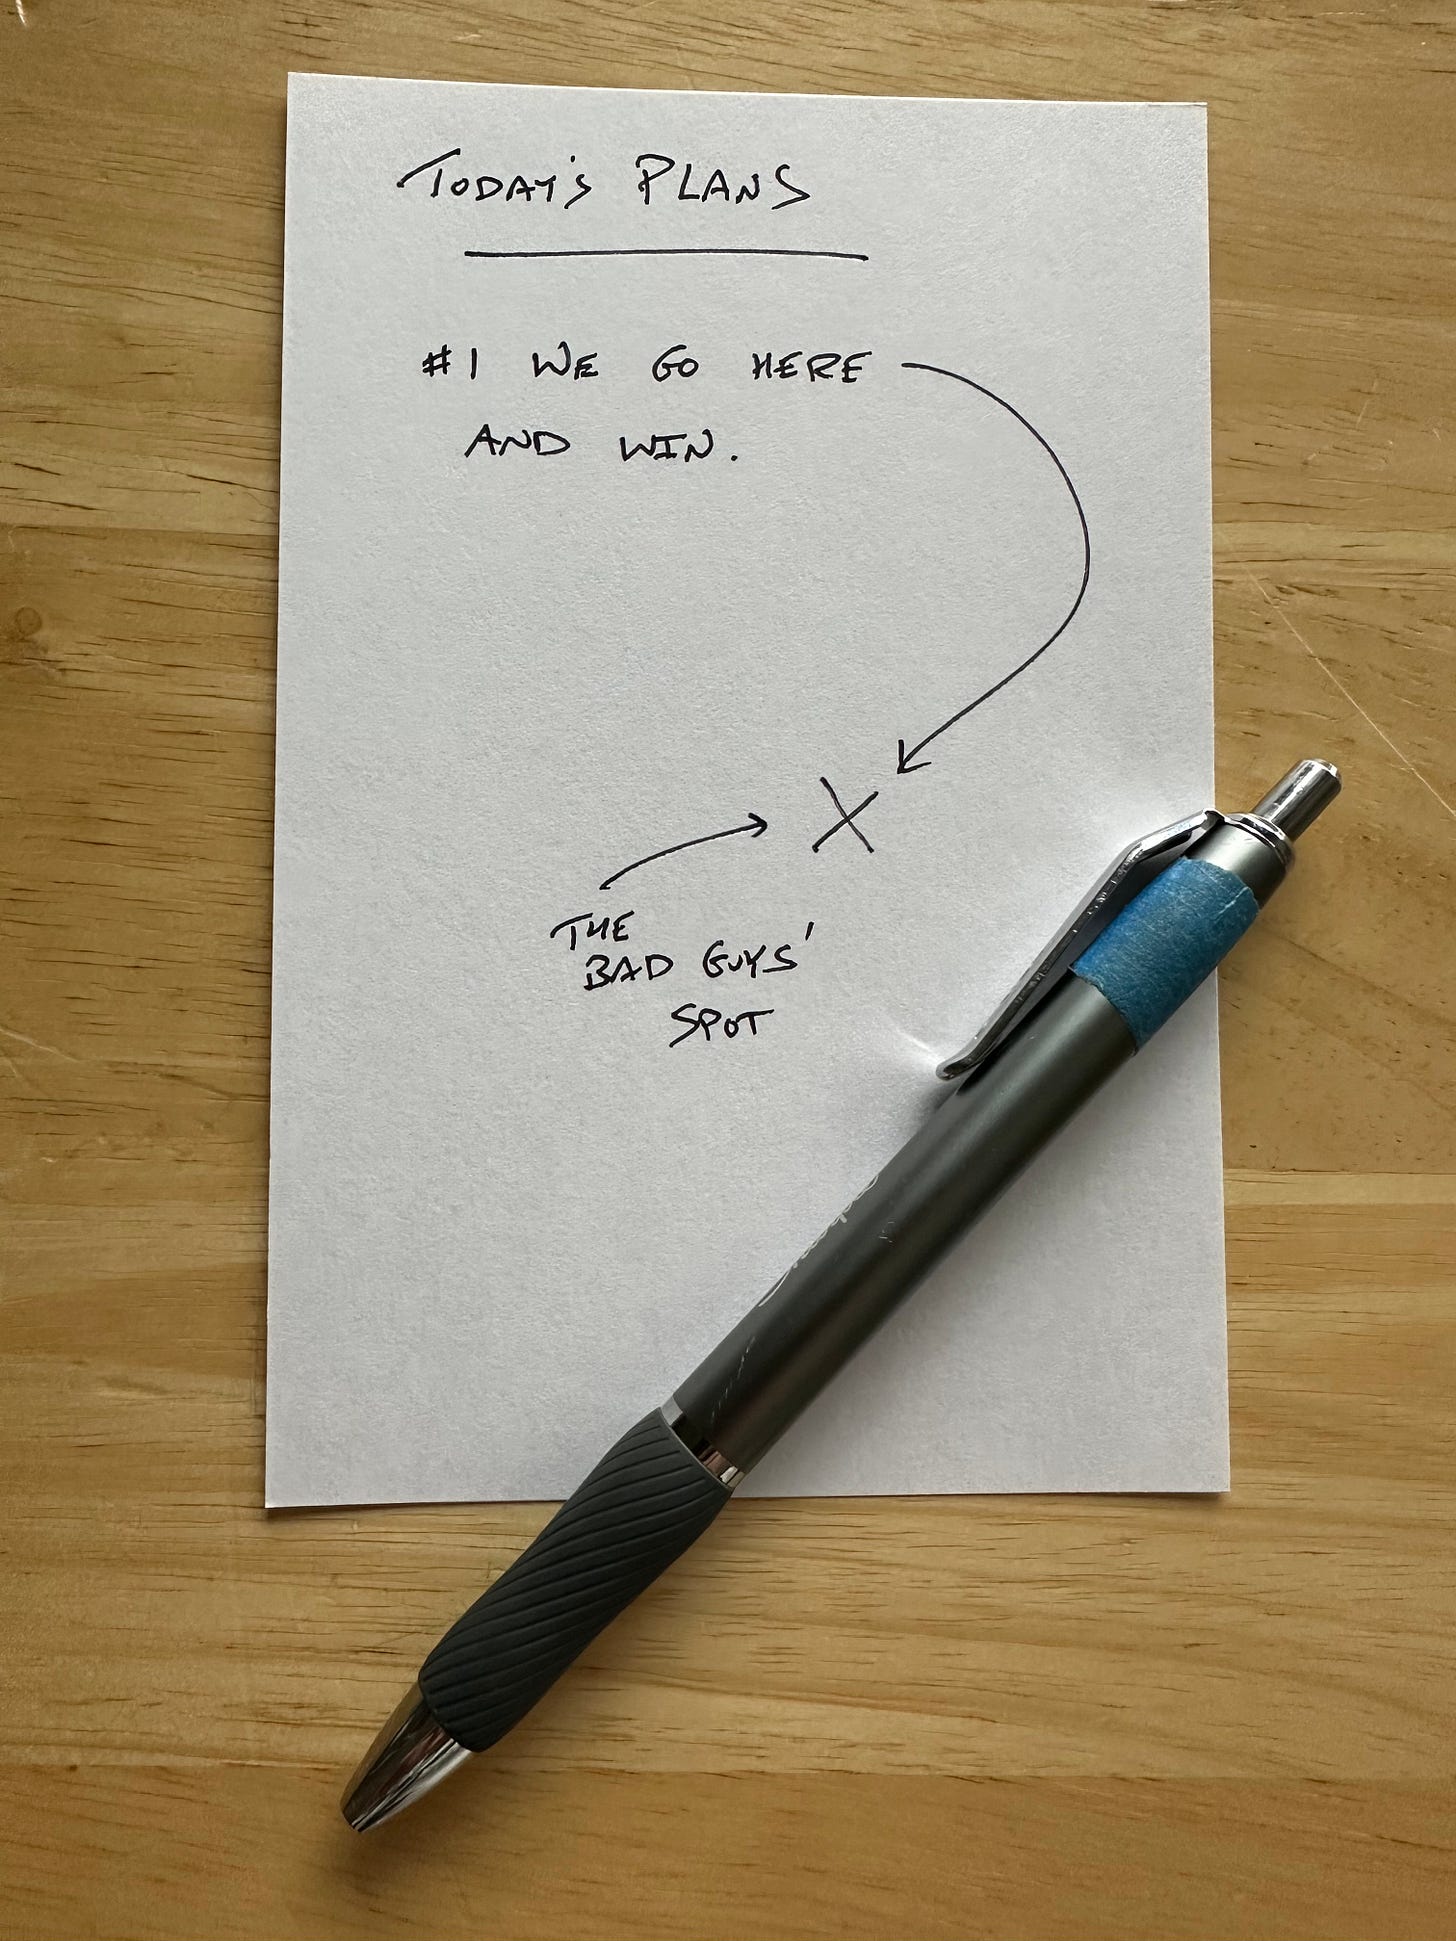 TODAY'S PLANS
#1 WE GO HERE
AND WIN.
X
THE
BAD GUYS'
SPOT